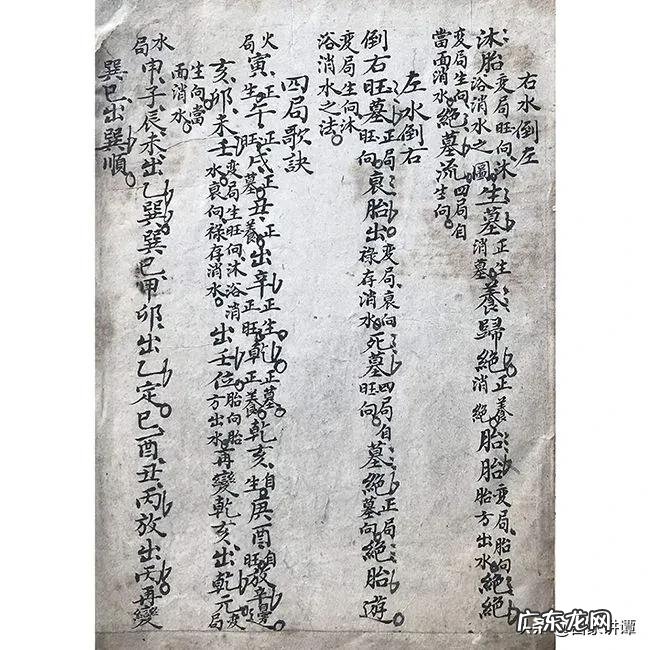 右水倒左
沐胎變局旺向沐浴消水之圖生墓正生消墓養歸絕正養消絕胎胎變局胎向胎方出水絕絕
變局生向當面消水絕墓流四局自生向
左水倒右
倒右旺墓正局旺向衰胎出變局衰向祿存消水死墓四局自旺向墓絕正局墓向絕胎遊
變局生向沐浴消水之法
四局歌訣
火局寅正生午正旺戌正墓丑正養出辛正生正旺乾正墓正養乾亥自生庚酉自旺放辛
亥卯未壬變局生旺向沐浴消水衰向祿存消水出壬位胎向胎方出水再變乾亥出乾元變局
生向當面消水
水局申子辰未出乙巽巽巳甲卯出乙定巳酉丑丙放出丙再變
巽巳出巽順
广东龙网